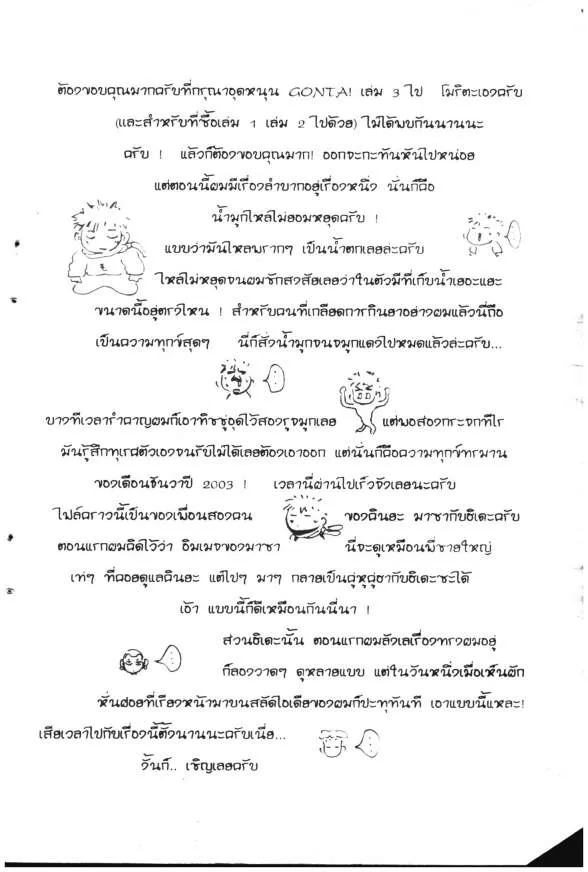 ต้องขอบคุณมากครับที่กรุณาอุดหนุน GONTA! เล่ม 3 ไป โมริตะเองครับ
(และสำหรับที่ซื้อเล่ม 1 เล่ม 2 ไปด้วย) ไม่ได้พบกันนานนะ
ครับ ! แล้วก็ต้องขอบคุณมาก! ออกจะกะทันหันไปหน่อย
แต่ตอนนี้ผมมีเรื่องลำบากอยู่เรื่องหนึ่ง นั่นก็คือ
น้ำมูกไหลไม่ยอมหยุดครับ !
แบบว่ามันไหลพรากๆ เป็นน้ำตกเลยละครับ
ไหลไม่หยุดจนผมชักสงสัยเลยว่าในตัวมีที่เก็บน้ำเยอะแยะ
ขนาดนี้อยู่ตรงไหน ! สำหรับคนที่เกลียดการกินยาอย่างผมแล้วนี่ถือ
เป็นความทุกข์สุดๆ นี่ก็สั่งน้ำมูกจนจมูกแดงไปหมดแล้วล่ะครับ...
บางทีเวลารำคาญผมก็เอาทิชชูอุดไว้สองรูจมูกเลย แต่พอส่องกระจกทีไร
มันรู้สึกทุเรศตัวเองจนรับไม่ได้เลยต้องเอาออก แต่นั่นก็คือความทุกข์ทรมาน
ของเดือนธันวาปี 2003 ! เวลานี่ผ่านไปเร็วจังเลยนะครับ
ไฟล์คราวนี้เป็นของเพื่อนสองคน ของคินยะ มาซากับฮิเดะครับ
ตอนแรกผมคิดไว้ว่า อิมเมจของมาซา นี่จะดูเหมือนพี่ชายใหญ่
เท่ๆ ที่คอยดูแลคินยะ แต่ไปๆ มาๆ กลายเป็นคู่หูคู่ฮากับฮิเดะซะได้
เอ้า แบบนี้ก็ดีเหมือนกันนี่นา !
ส่วนฮิเดะนั้น ตอนแรกผมลังเลเรื่องทรงผมอยู่
ก็ลองวาดๆ ดูหลายแบบ แต่ในวันหนึ่งเมื่อเห็นผัก
หั่นฝอยที่เรียงหน้ามาบนสลัดไอเดียของผมก็ปะทุทันที เอาแบบนี้แหละ!
เสียเวลาไปกับเรื่องนี้ตั้งนานนะครับเนี่ย...
งั้นก็.. เชิญเลยครับ